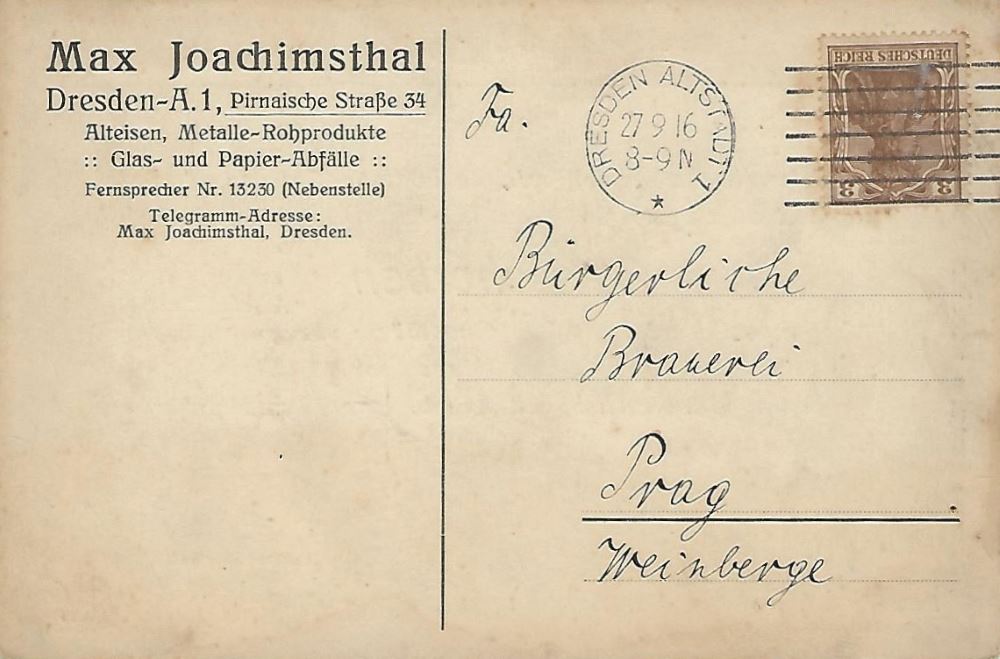 Max Joachimsthal
Dresden-A.1, Pirnaische Straße 34
Alteisen, Metalle-Rohprodukte
:: Glas- und Papier-Abfälle ::
Fernsprecher Nr. 13230 (Nebenstelle)
Telegramm-Adresse:
Max Joachimsthal, Dresden.
DRESDEN ALTSTADT 1
27 9 16
8-9 N
*
DEUTSCHES REICH
3 3
Fa.
Bürgerliche
Brauerei
Prag
Weinberge